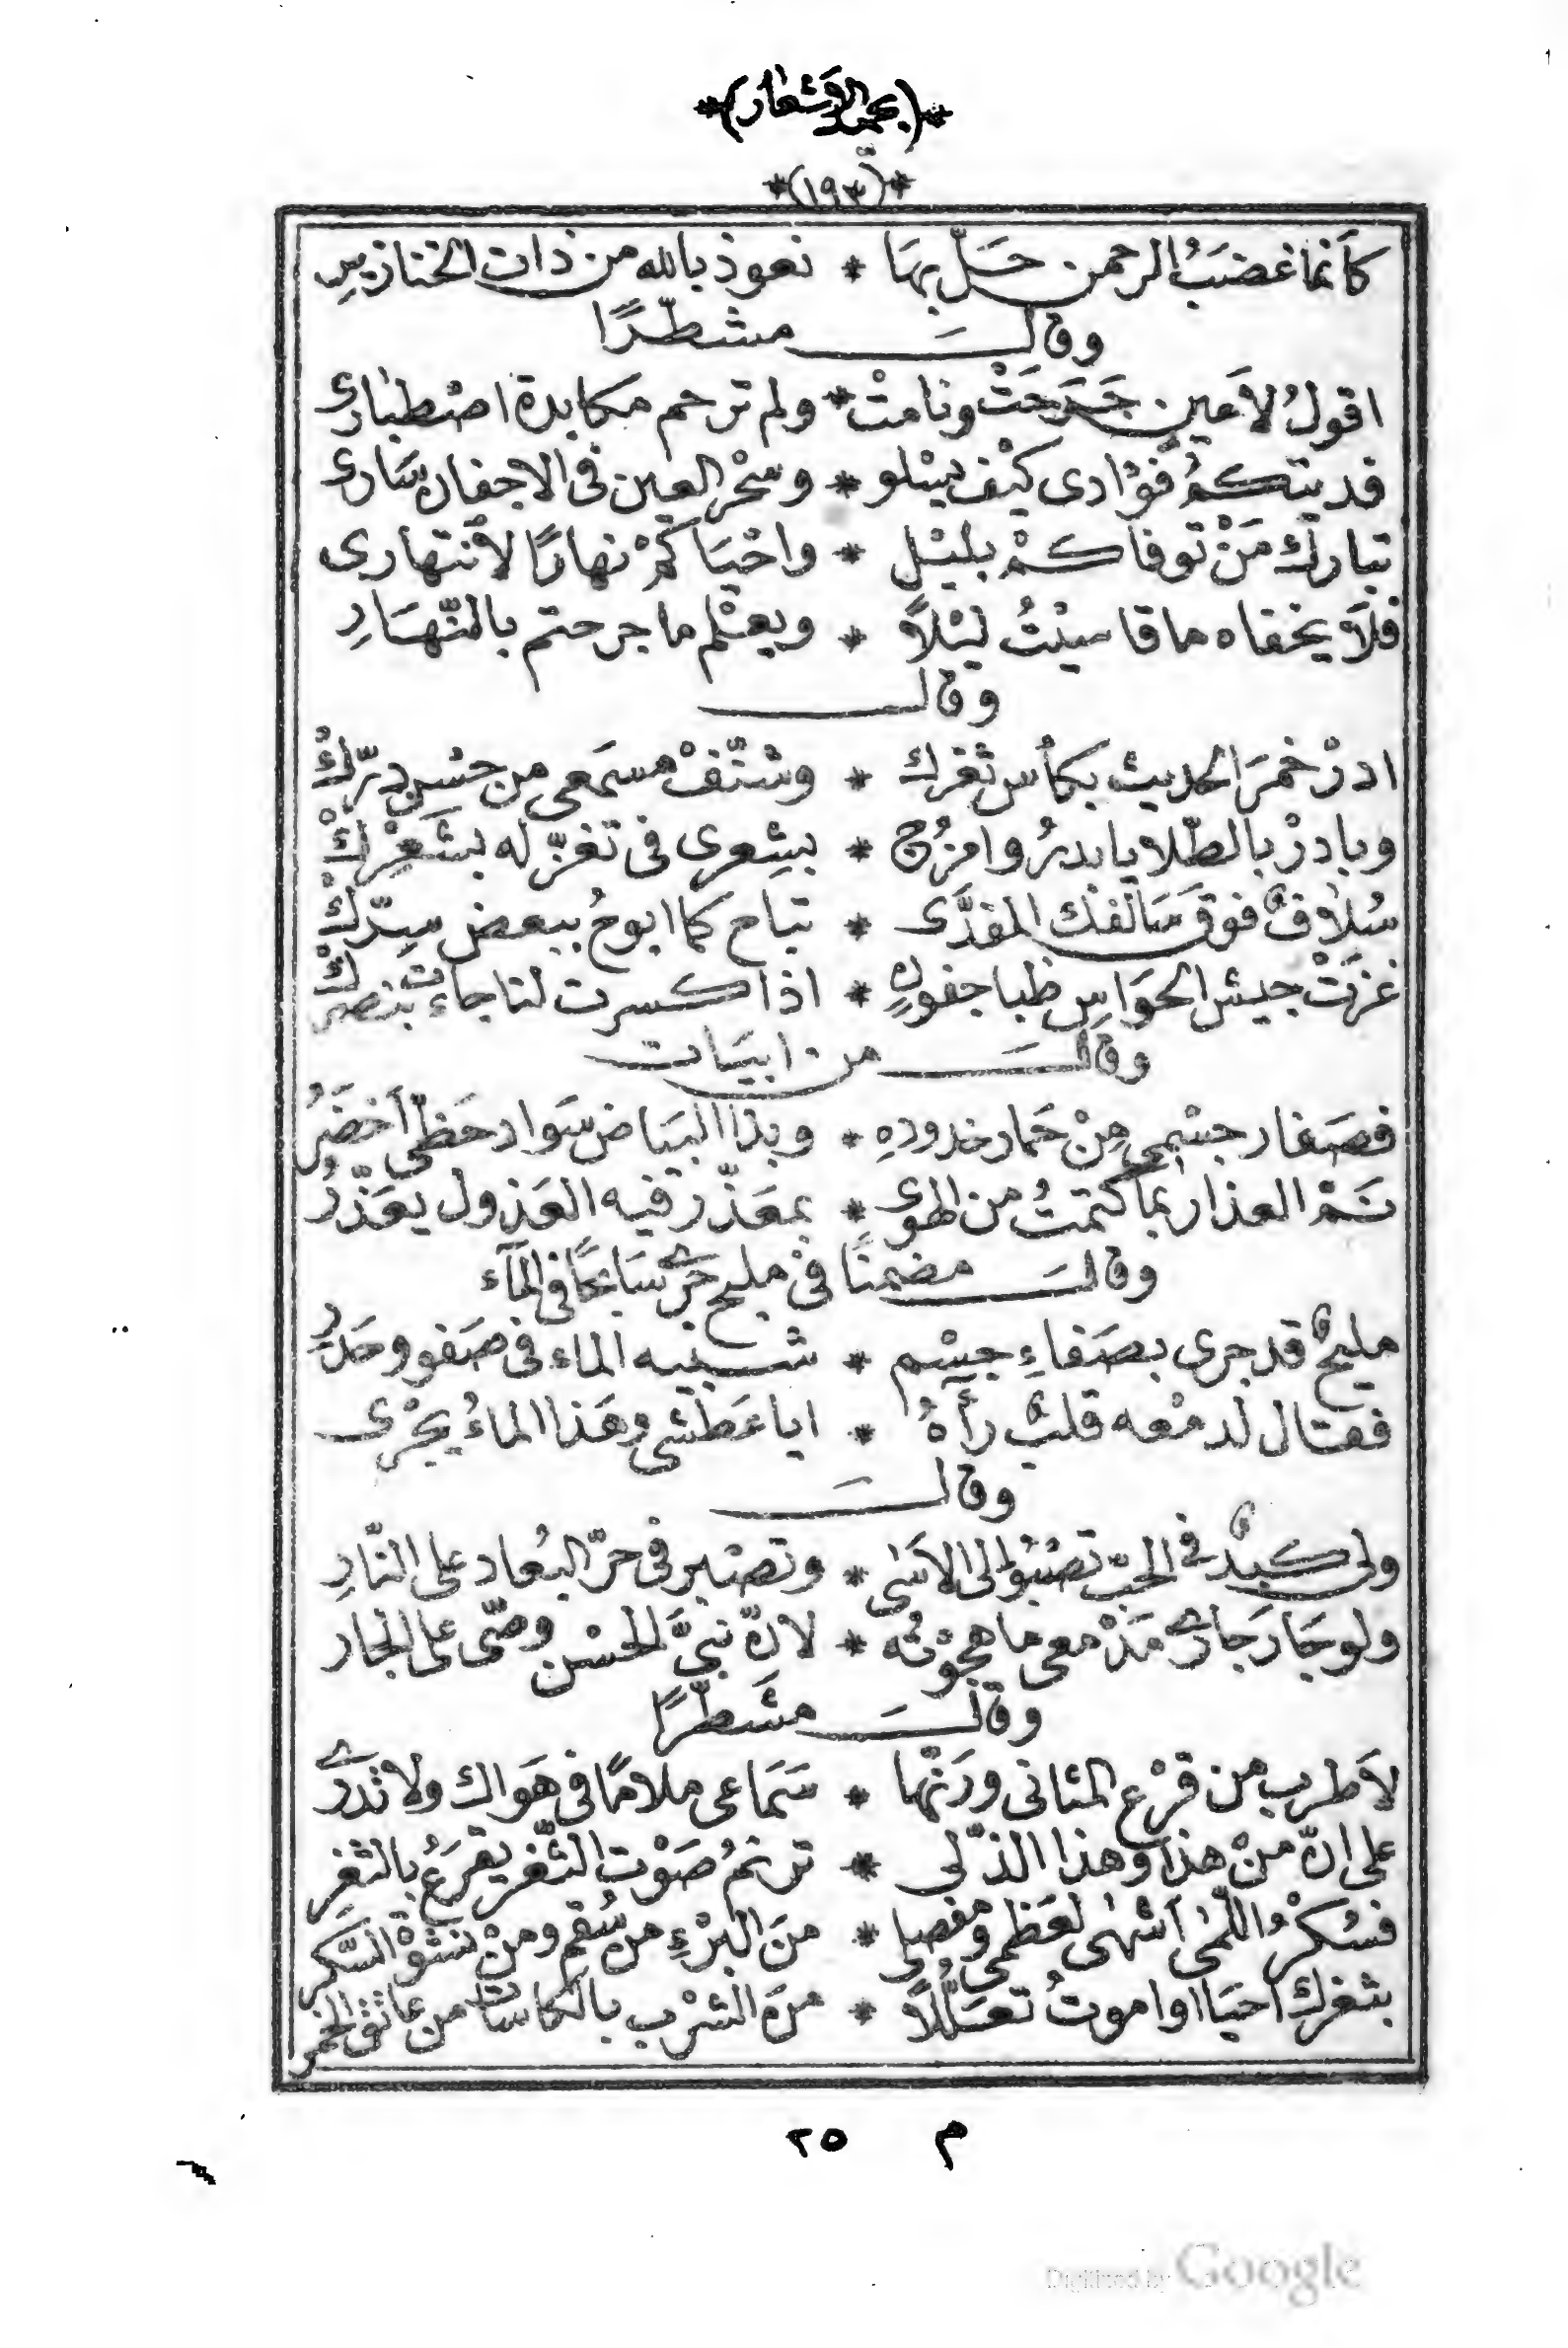 *(بحمد الاشعار)*
*(١٩٣)*
كأنما غضبُ الرحمن حَلّ بهَا * نعوذ بالله من ذات الخنازيرِ
وقالَ مشطّرًا
اقولُ لأَعين جَرَحَتْ ونامتْ * ولم ترحم مكابدة اصْطبارى
فديتكمُ فؤادى كيْف يسْلو * وسْحْر العين فى الاجفان سَارى
تبارك مَنْ توفاكمْ بليْل * واحْيَاكمْ نهارًا لانتهارى
فلاَ يخفاه ما قاسيْتُ ليْلاً * ويعْلم ما جرحتم بالنّهَارِ
وقال
ادرْ خمرَ الحديث بكأس ثغرك * وشنّفْ مسمَعى مِن حسْن درّكْ
وبادرْ بالطّلا يا بدرُ وامزُج * بشِعرى فى تغزّله بشَعْرِكْ
سُلافٌ فوق سَالفك المفدَّى * تباح كما ابوحُ ببعض سِرّكْ
غزَتْ جيش الحوَاسِ ظبا جفونٍ * اذا كسرت لنا جاءت بنصركْ
وقالَ من ابيَات
فصَفار جسْمى مِنْ حَمار خدودهِ * وبذا البيَاض سَواد حَظّى اَخضَرُ
نَمْ العذار بما كتمتُ من الهوى * بمعَذّر فيه العَذول يعَذّرُ
وقالَ مضمنًا فى مليح جَرى سَابحًا فى المآء
مليحٌ قد جرى بصَفاءِ جسْم * شبيه الماء فى صَفو وحَدرِ
فقال لدمْعه قلبٌ رأهُ * ايا عَطشى وهَذا الماءُ يجْرى
وقالَ
ولى كبدٌ فى الحبّ تصْبُو الى الاَسَى * وتصْبر فى حرّ البُعاد على النّارِ
ولو جَارَ جارى مَدْمعى ما هجوْته * لانّ نبىَّ الحسْن وصّى على الجار
وقالَ مشَطّرًا
لاَطرب من قرْع المثانى ورَنّها * سَمَاعى ملامًا فى هَواك ولا تدرى
على انّ مِنْ هذا وهذا الذّ لى * ترنمُ صَوْت الثّغر يقرَعُ بالثغرِ
فسُكرُ اللّمى اَشهى لعَظمى ومفصلى * منَ البرْءِ من سُقم ومنْ نشوْة السّكر
بثغرك احيَا او اموتُ تعَلُّلاً * منَ الشرْب بالكاسات من عاتق الخمر
م ٢٥
Digitized by Google